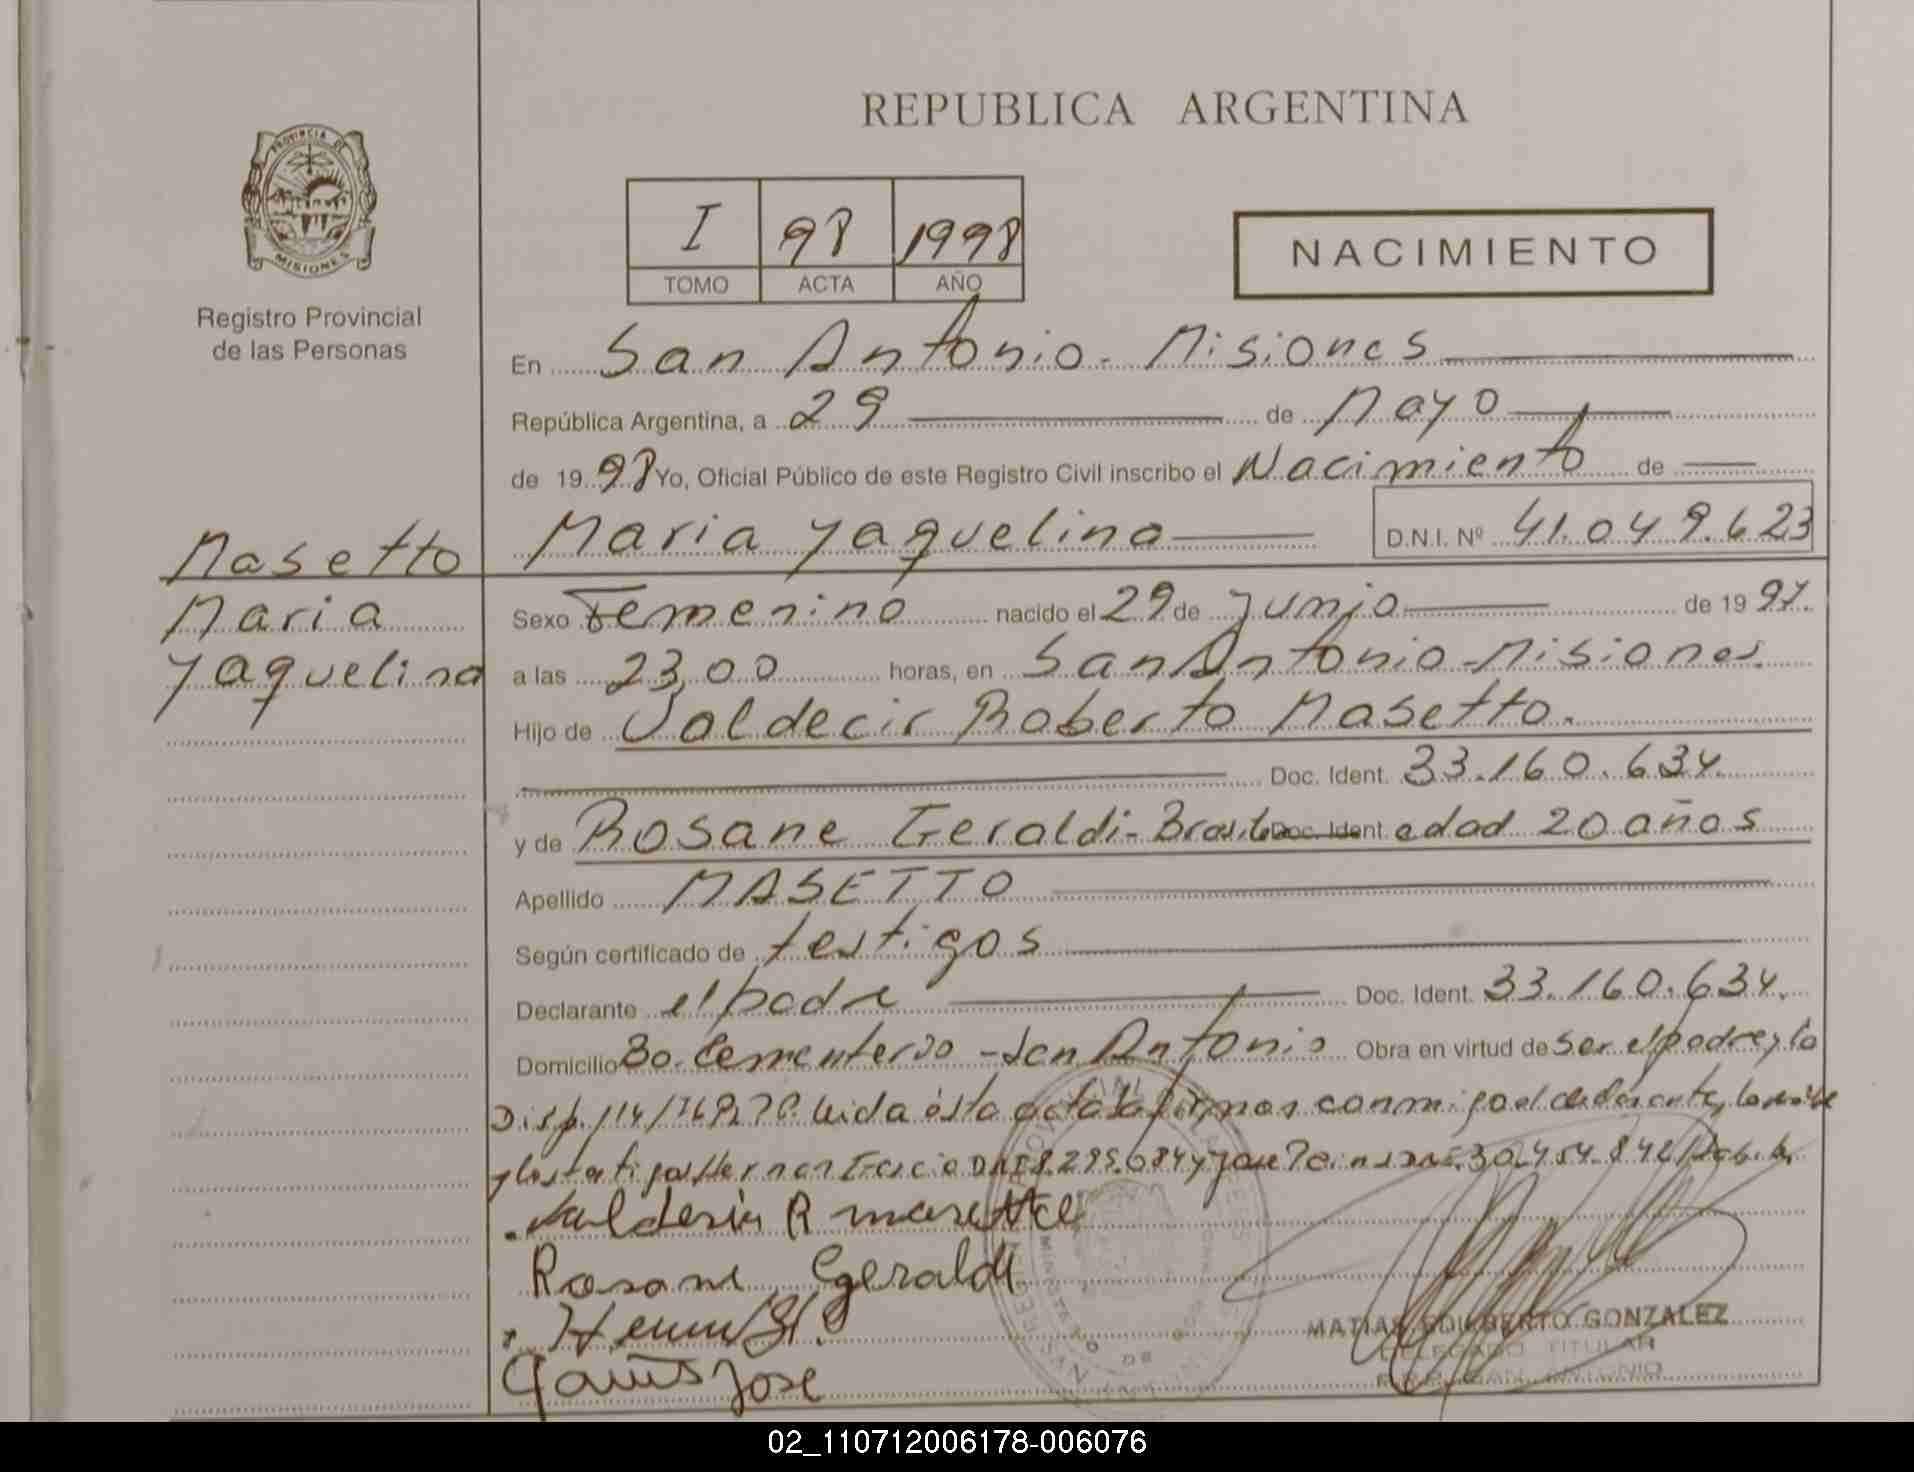 PROVINCIA DE
MISIONES
Registro Provincial
de las Personas
REPUBLICA ARGENTINA
I 98 1998
TOMO ACTA AÑO
NACIMIENTO
En San Antonio - Misiones
República Argentina, a 29 de Mayo
de 1998 Yo, Oficial Público de este Registro Civil inscribo el Nacimiento de
Maria Yaquelina D.N.I. Nº 41.049.623
Masetto
Maria
Yaquelina
Sexo Femenino nacido el 29 de Junio de 1997.
a las 23,00 horas, en San Antonio - Misiones.
Hijo de Valdecir Roberto Masetto.
Doc. Ident. 33.160.634.
y de Rosane Geraldi - Doc. Ident. edad 20 años
Apellido MASETTO
Según certificado de testigos
Declarante el padre Doc. Ident. 33.160.634.
Domicilio Bo. Cementerio - San Antonio Obra en virtud de Ser el padre y la
Disp. 114/ leida esta acta la firman conmigo el declarante, la madre
y los testigos Hernan y Jose
Rosane Geraldi
Jose
MATIAS EDILBERTO GONZALEZ
DELEGADO TITULAR
SAN ANTONIO
02_110712006178-006076